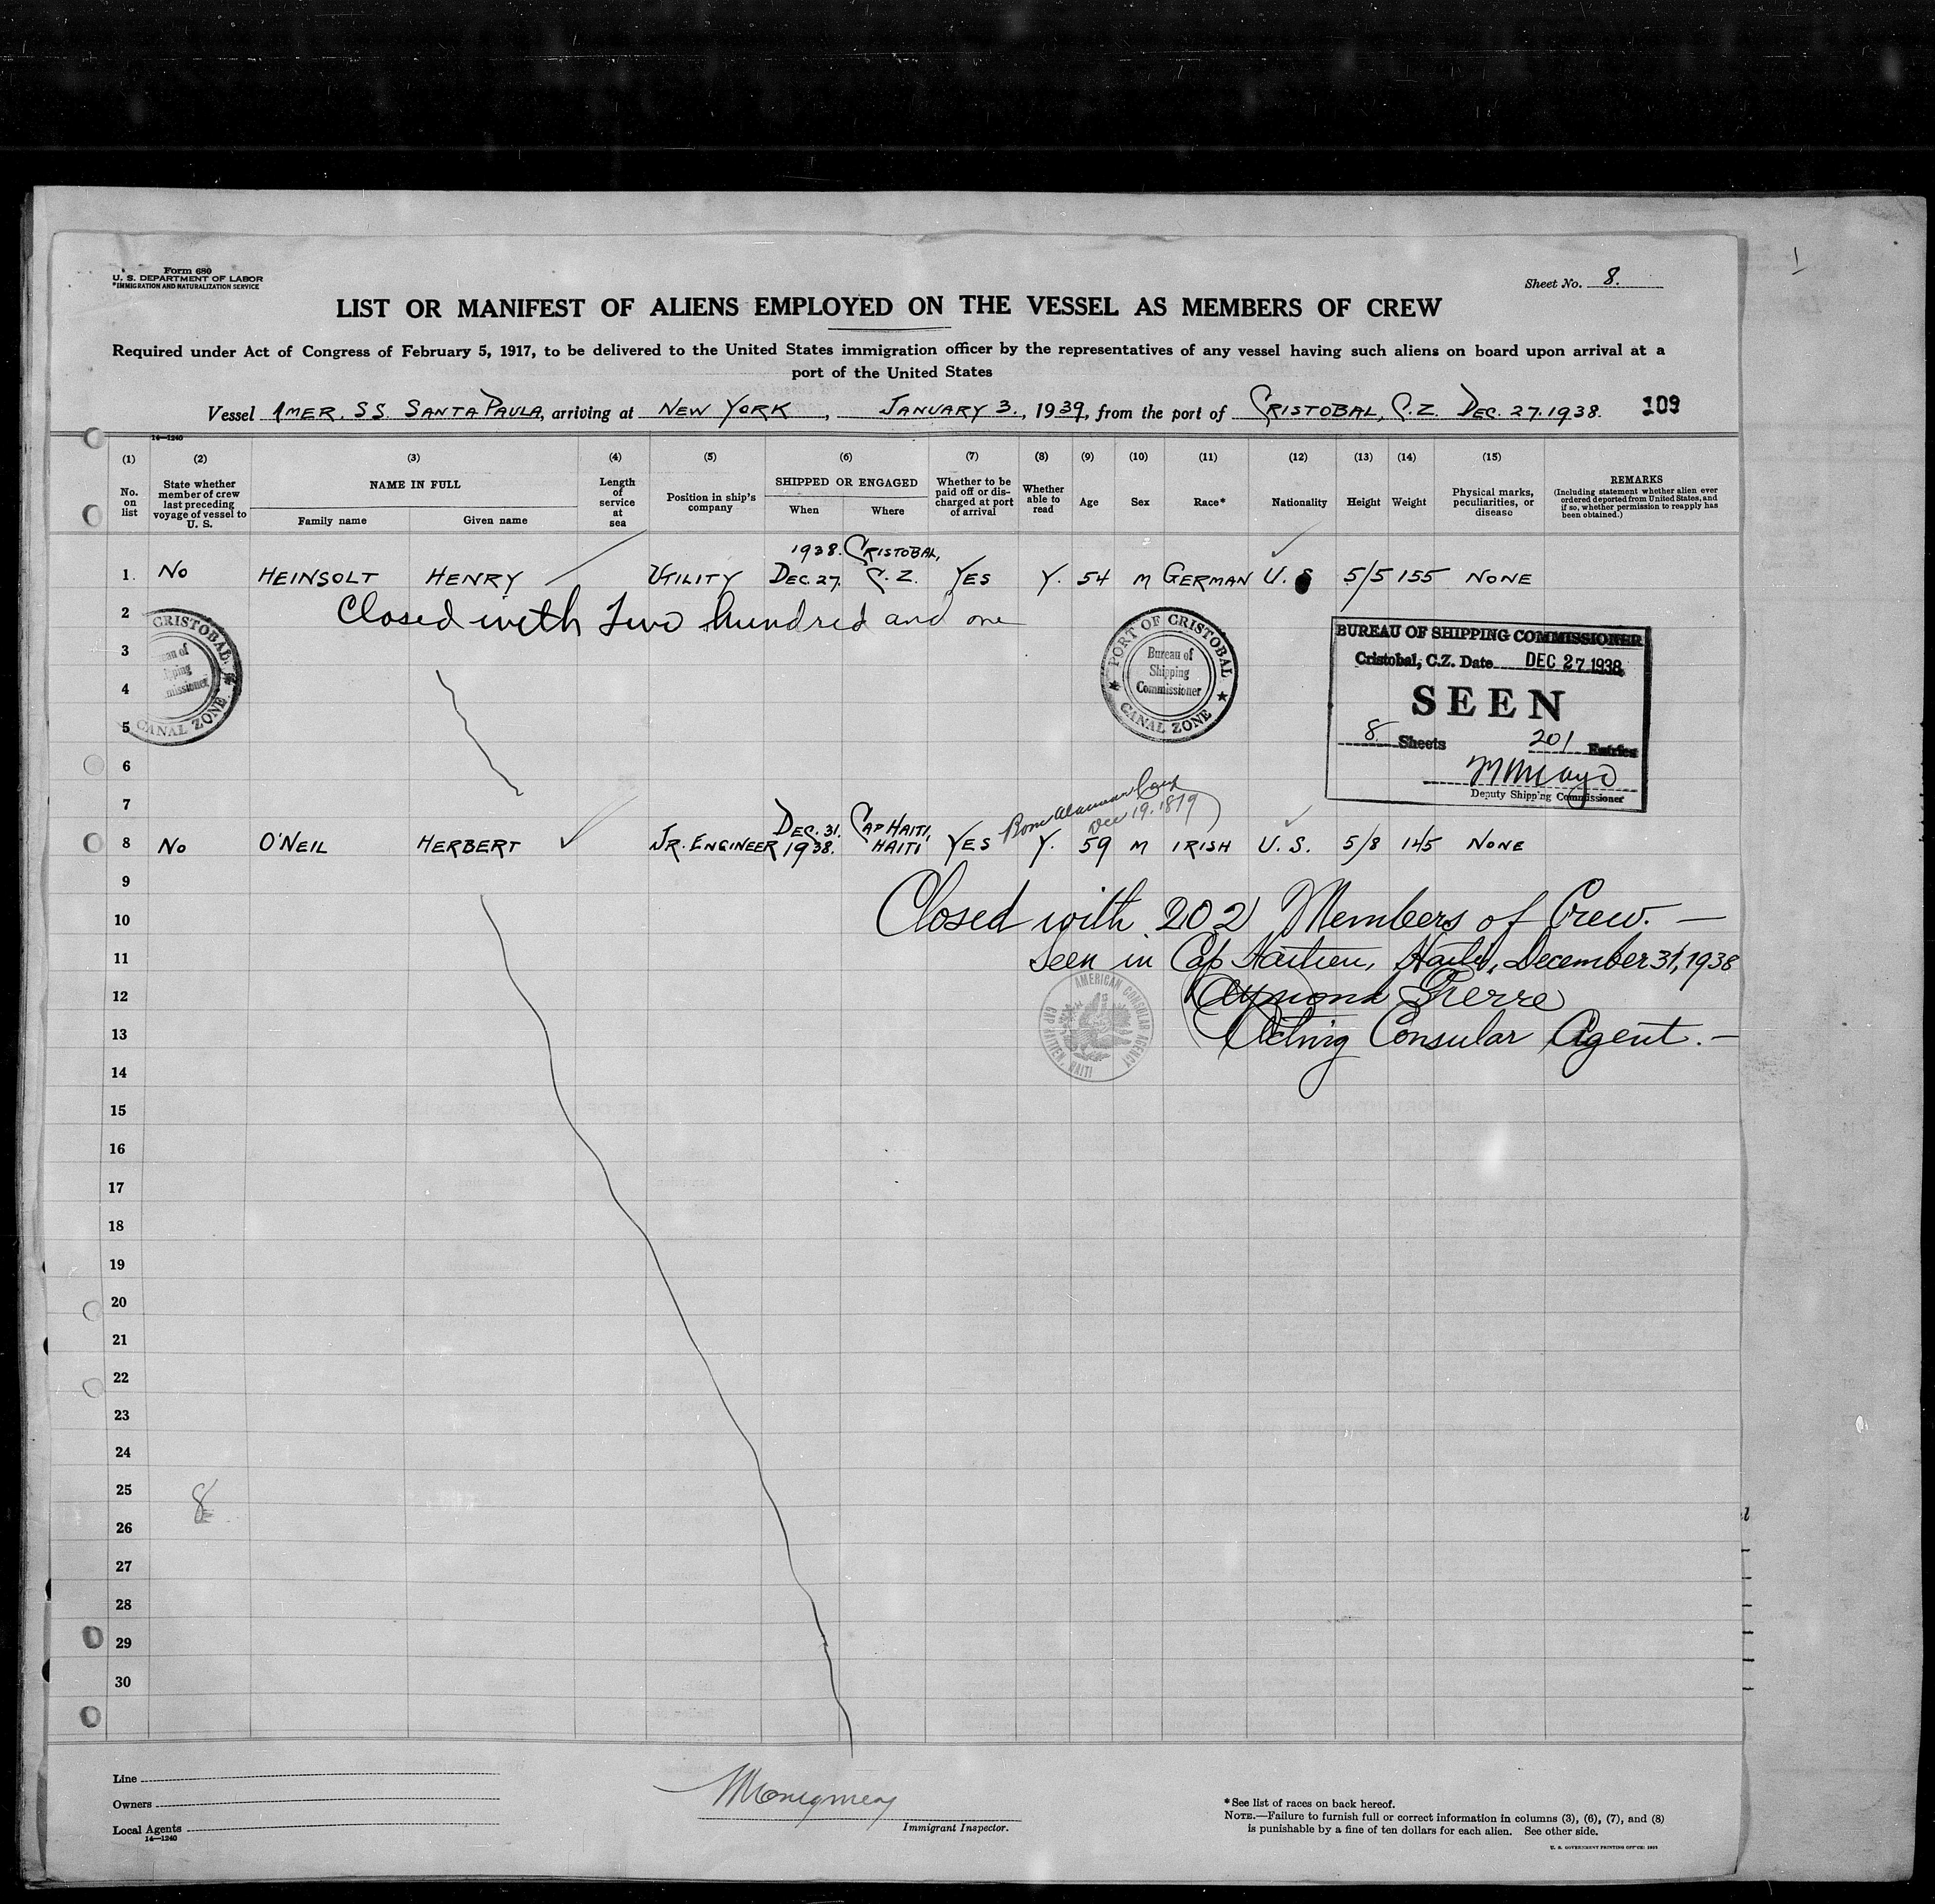 Form 680
U. S. DEPARTMENT OF LABOR
*IMMIGRATION AND NATURALIZATION SERVICE
Sheet No. 8.
LIST OR MANIFEST OF ALIENS EMPLOYED ON THE VESSEL AS MEMBERS OF CREW
Required under Act of Congress of February 5, 1917, to be delivered to the United States immigration officer by the representatives of any vessel having such aliens on board upon arrival at a
port of the United States
Vessel AMER. SS. SANTA PAULA, arriving at NEW YORK, JANUARY 3., 1939, from the port of CRISTOBAL, C.Z. DEC. 27. 1938. 109
14—1240
(1) (2) (3) (4) (5) (6) (7) (8) (9) (10) (11) (12) (13) (14) (15)
No. on list
State whether member of crew last preceding voyage of vessel to U. S.
NAME IN FULL
Family name Given name
Length of service at sea
Position in ship's company
SHIPPED OR ENGAGED
When Where
Whether to be paid off or discharged at port of arrival
Whether able to read
Age
Sex
Race*
Nationality
Height
Weight
Physical marks, peculiarities, or disease
REMARKS
(Including statement whether alien ever ordered deported from United States, and if so, whether permission to reapply has been obtained.)
1938. CRISTOBAL,
1. NO HEINSOLT HENRY UTILITY DEC. 27. C. Z. YES Y. 54 M GERMAN U. S 5/5 155 NONE
2 Closed with Two hundred and one
3
4
5
CRISTOBAL
CANAL ZONE
PORT OF CRISTOBAL
Bureau of
Shipping
Commissioner
CANAL ZONE
BUREAU OF SHIPPING COMMISSIONER
Cristobal, C.Z. Date DEC 27 1938
SEEN
8 Sheets 201 Entries
Deputy Shipping Commissioner
6
7
Born
Dec 19. 1879
DEC. 31. CAP HAITI,
8 NO O'NEIL HERBERT JR. ENGINEER 1938. HAITI YES Y. 59 M IRISH U. S. 5/8 145 NONE
9
10 Closed with 202 Members of Crew. —
11 Seen in Cap Haitien, Haiti, December 31, 1938
12 Raymond Pierre
13 Acting Consular Agent. —
AMERICAN CONSULAR AGENCY
CAP HAITIEN, HAITI
14
15
16
17
18
19
20
21
22
23
24
25
8
26
27
28
29
30
Line
Owners
Local Agents
14—1240
Immigrant Inspector.
*See list of races on back hereof.
NOTE.—Failure to furnish full or correct information in columns (3), (6), (7), and (8)
is punishable by a fine of ten dollars for each alien. See other side.